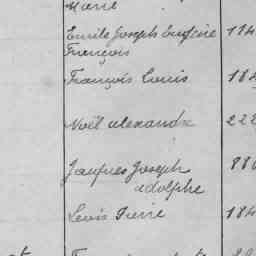 Marie
Emile Joseph Eugène 114
François
François Louis 184
Noël Alexandre 222
Jacques Joseph 880
adolphe
Louis Pierre 184